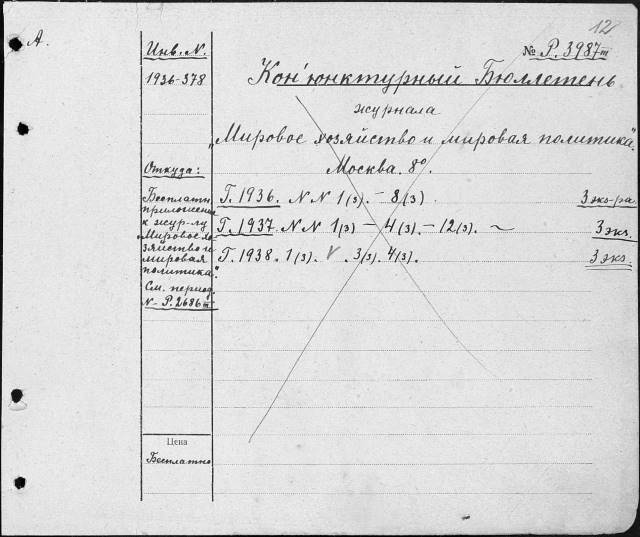 12
А.
Инв. N.
№ Р. 3987 III
1936-378
Кон'юнктурный Бюллетень
журнала
„Мировое хозяйство и мировая политика".
Москва. 8º.
Откуда:
Бесплатн.
приложение
к жур-лу
„Мировое хо
зяйство и
мировая
политика".
См. период.
N- Р. 2686 III
Г. 1936. N N 1(3). – 8(3)
3 экз-ра
Г. 1937. N N 1(3) – 4(3). – 12(3). ~
3 экз.
Г. 1938. 1(3). V . 3(3). 4(3).
3 экз.
Цена
Бесплатно